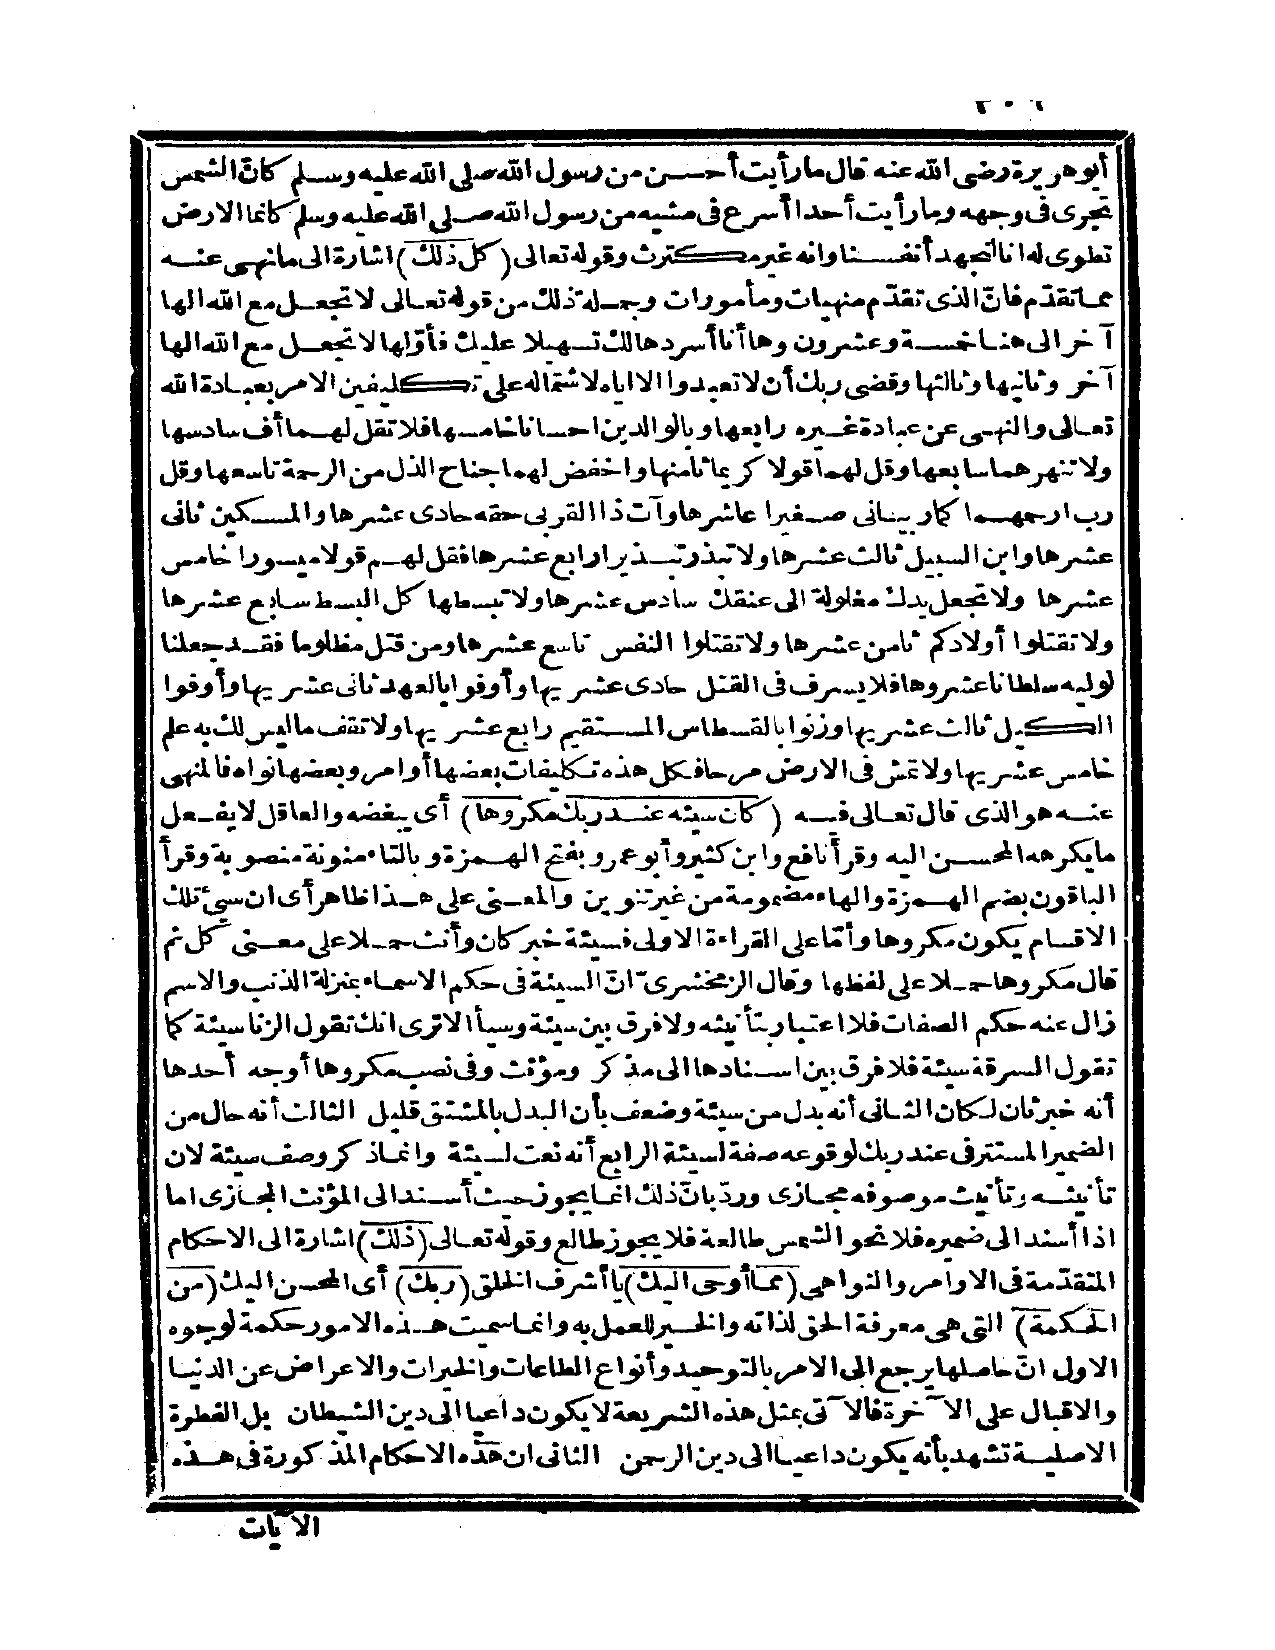 أبو هريرة رضى الله عنه قال ما رأيت أحسن من رسول الله صلى الله عليه وسلم كانّ الشمس
تجرى فى وجهه وما رأيت أحدا أسرع فى مشيه من رسول الله صلى الله عليه وسلم كانما الارض
تطوى له انا لنجهد أنفسنا وانه غير مكترث وقوله تعالى (كل ذلك) اشارة الى ما نهى عنه
مما تقدّم فانّ الذى تقدّم منهيات ومأمورات وجملة ذلك من قوله تعالى لا تجعل مع الله الها
آخر الى هنا خمسة وعشرون وها أنا أسردها لك تسهيلا عليك فأوّلها لا تجعل مع الله الها
آخر وثانيها وثالثها وقضى ربك أن لا تعبدوا الا اياه لاشتماله على تكليفين الامر بعبادة الله
تعالى والنهى عن عبادة غيره رابعها وبالوالدين احسانا خامسها فلا تقل لهما أف سادسها
ولا تنهرهما سابعها وقل لهما قولا كريما ثامنها واخفض لهما جناح الذل من الرحمة تاسعها وقل
رب ارحمهما كما ربيانى صغيرا عاشرها وآت ذا القربى حقه حادى عشرها والمسكين ثانى
عشرها وابن السبيل ثالث عشرها ولا تبذر تبذيرا رابع عشرها فقل لهم قولا ميسورا خامس
عشرها ولا تجعل يدك مغلولة الى عنقك سادس عشرها ولا تبسطها كل البسط سابع عشرها
ولا تقتلوا أولادكم ثامن عشرها ولا تقتلوا النفس تاسع عشرها ومن قتل مظلوما فقد جعلنا
لوليه سلطانا عشروها فلا يسرف فى القتل حادى عشريها وأوفوا بالعهد ثانى عشريها وأوفوا
الكيل ثالث عشريها وزنوا بالقسطاس المستقيم رابع عشريها ولا تقف ما ليس لك به علم
خامس عشريها ولا تمش فى الارض مرحا فكل هذه تكليفات بعضها أوامر وبعضها نواه فالمنهى
عنه هو الذى قال تعالى فيه (كان سيئه عند ربك مكروها) أى يبغضه والعاقل لا يفعل
ما يكرهه المحسن اليه وقرأ نافع وابن كثير وأبو عمرو بفتح الهمزة وبالتاء منونة منصوبة وقرأ
الباقون بضم الهمزة والهاء مضمومة من غير تنوين والمعنى على هذا ظاهر أى ان سيئ تلك
الاقسام يكون مكروها وأمّا على القراءة الاولى فسيئة خبر كان وأنث حملا على معنى كل ثم
قال مكروها حملا على لفظها وقال الزمخشرىّ انّ السيئة فى حكم الاسماء بمنزلة الذنب والاسم
زال عنه حكم الصفات فلا اعتبار بتأنيثه ولا فرق بين سيئة وسيأ الا ترى انك تقول الزنا سيئة كما
تقول السرقة سيئة فلا فرق بين اسنادها الى مذكر ومؤنث وفى نصب مكروها أوجه أحدها
أنه خبر ثان لكان الثانى أنه بدل من سيئة وضعف بأن البدل بالمشتق قليل الثالث أنه حال من
الضمير المستتر فى عند ربك لوقوعه صفة لسيئة الرابع أنه نعت لسيئة وانما ذكر وصف سيئة لان
تأنيثه وتأنيث موصوفه مجازى وردّ بانّ ذلك انما يجوز حيث أسند الى المؤنث المجازى اما
اذا أسند الى ضميره فلا نحو الشمس طالعة فلا يجوز طالع وقوله تعالى (ذلك) اشارة الى الاحكام
المتقدّمة فى الاوامر والنواهى (مما أوحى اليك) يا أشرف الخلق (ربك) أى المحسن اليك (من
الحكمة) التى هى معرفة الحق لذاته والخير للعمل به وانما سميت هذه الامور حكمة لوجوه
الاول انّ حاصلها يرجع الى الامر بالتوحيد وأنواع الطاعات والخيرات والاعراض عن الدنيا
والاقبال على الآخرة فالآتى بمثل هذه الشريعة لا يكون داعيا الى دين الشيطان بل الفطرة
الاصلية تشهد بأنه يكون داعيا الى دين الرحمن الثانى ان هذه الاحكام المذكورة فى هذه
الآيات